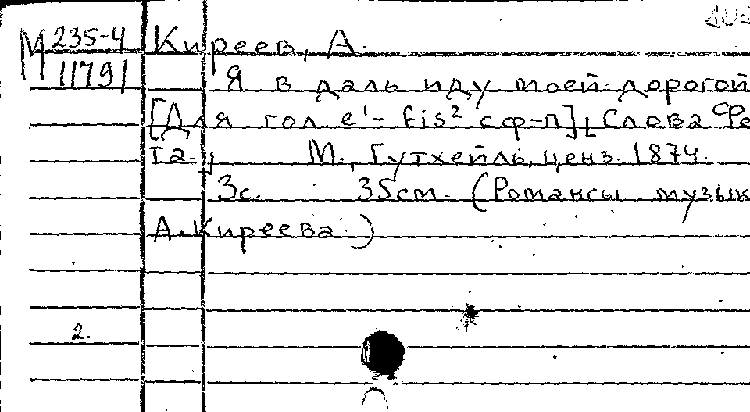 М 235-4 Киреев, А.
11791 Я в даль иду моей дорогой
[Для гол e¹- fis² с ф-п]. Слова Фе
та. М., Гутхейль, ценз. 1874.
3с. 35см. (Романсы музык
А. Киреева.)
2.